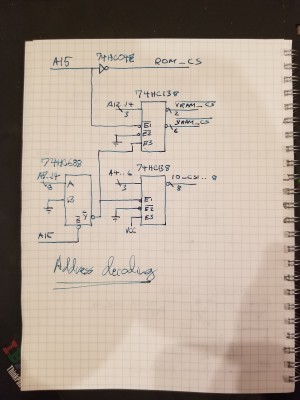 74HC04
A15
ROM_CS
74HC138
A12..14
3
VRAM_CS
2
SRAM_CS
6
E1
E2
E3
74HC688
74HC138
A8..14
A4..6
3
IO_CS1..8
8
A
B
E
Y
E1
E2
E3
A15
VCC
Address decoding